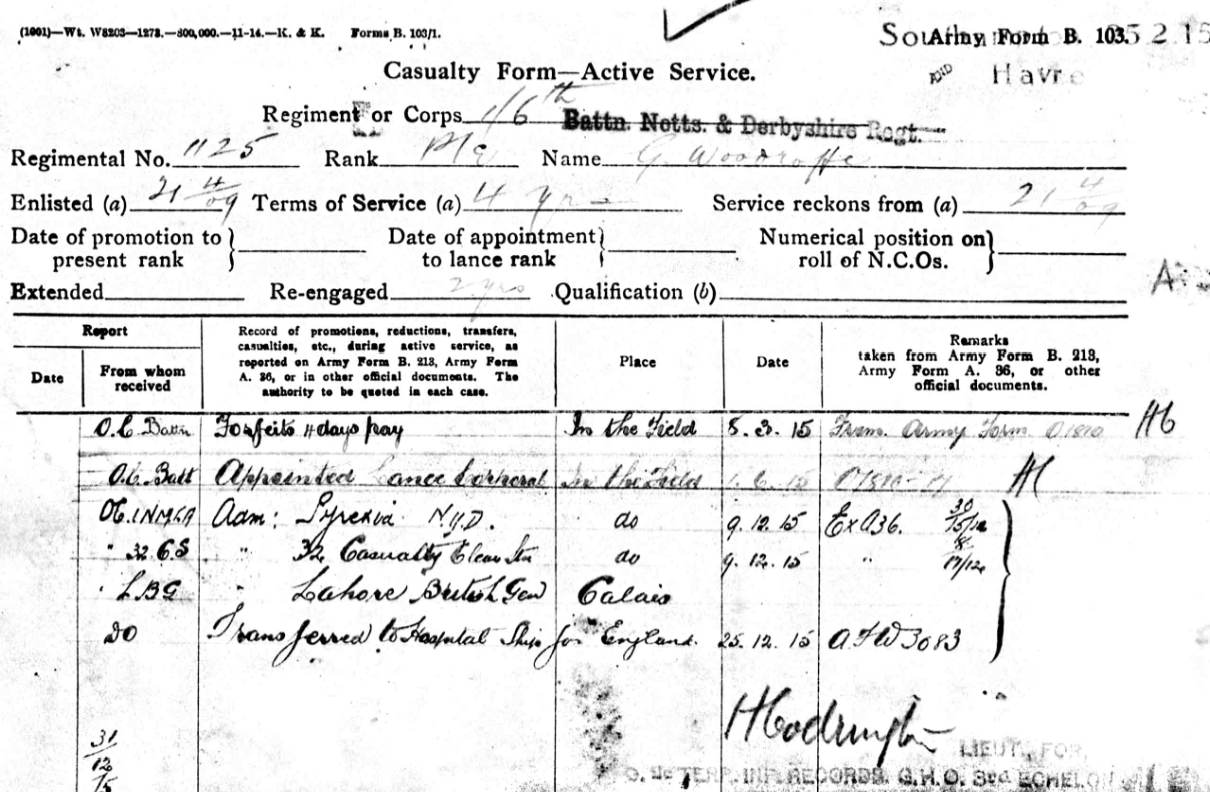 (1601)—Wt. W8203—1273.—800,000.—11-14.—K. & K. Forms B. 103/1.
Army Form B. 103.
5 2 15
AND Havre
Casualty Form—Active Service.
Regiment or Corps 1/6th Battn. Notts. & Derbyshire Regt.
Regimental No. 1125 Rank Pte Name G. Woodroffe
Enlisted (a) 21 4/09 Terms of Service (a) 4 yrs Service reckons from (a) 21 4/09
Date of promotion to present rank Date of appointment to lance rank Numerical position on roll of N.C.Os.
Extended Re-engaged 2 yrs Qualification (b)
Report
Date
From whom received
Record of promotions, reductions, transfers, casualties, etc., during active service, as reported on Army Form B. 213, Army Form A. 36, or in other official documents. The authority to be quoted in each case.
Place
Date
Remarks taken from Army Form B. 213, Army Form A. 36, or other official documents.
O.C. Battn Forfeits 4 days pay In the Field 5.3.15 From Army Form O1810
O.C. Batt Appointed Lance Corporal In the Field
Adm: Pyrexia N.Y.D. do 9.12.15 Ex A36.
" 32 C.S " 32 Casualty Clear Stn do 9.12.15 "
" LBG " Lahore British Gen Calais
DO Transferred to Hospital Ship for England. 25.12.15 AFW3083
31/12/15
LIEUT. FOR
TERR. INF. RECORDS. G.H.Q. 3rd ECHELON